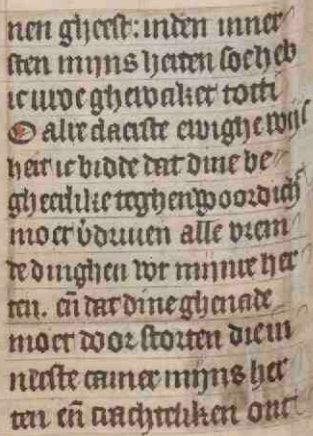 nen gheest: inden inner
sten mijns herten soe heb
ic uwe ghewaket totti
O alre claerste ewighe wijs
heit ic bidde dat dine be
gheerlike teghenwoordich
moet v̉driuen alle vrem
de dinghen wt mijnre her
ten. eñ dat dine ghenade
moet door storten die in
nerste camer mijns her
ten eñ crachteliken ont